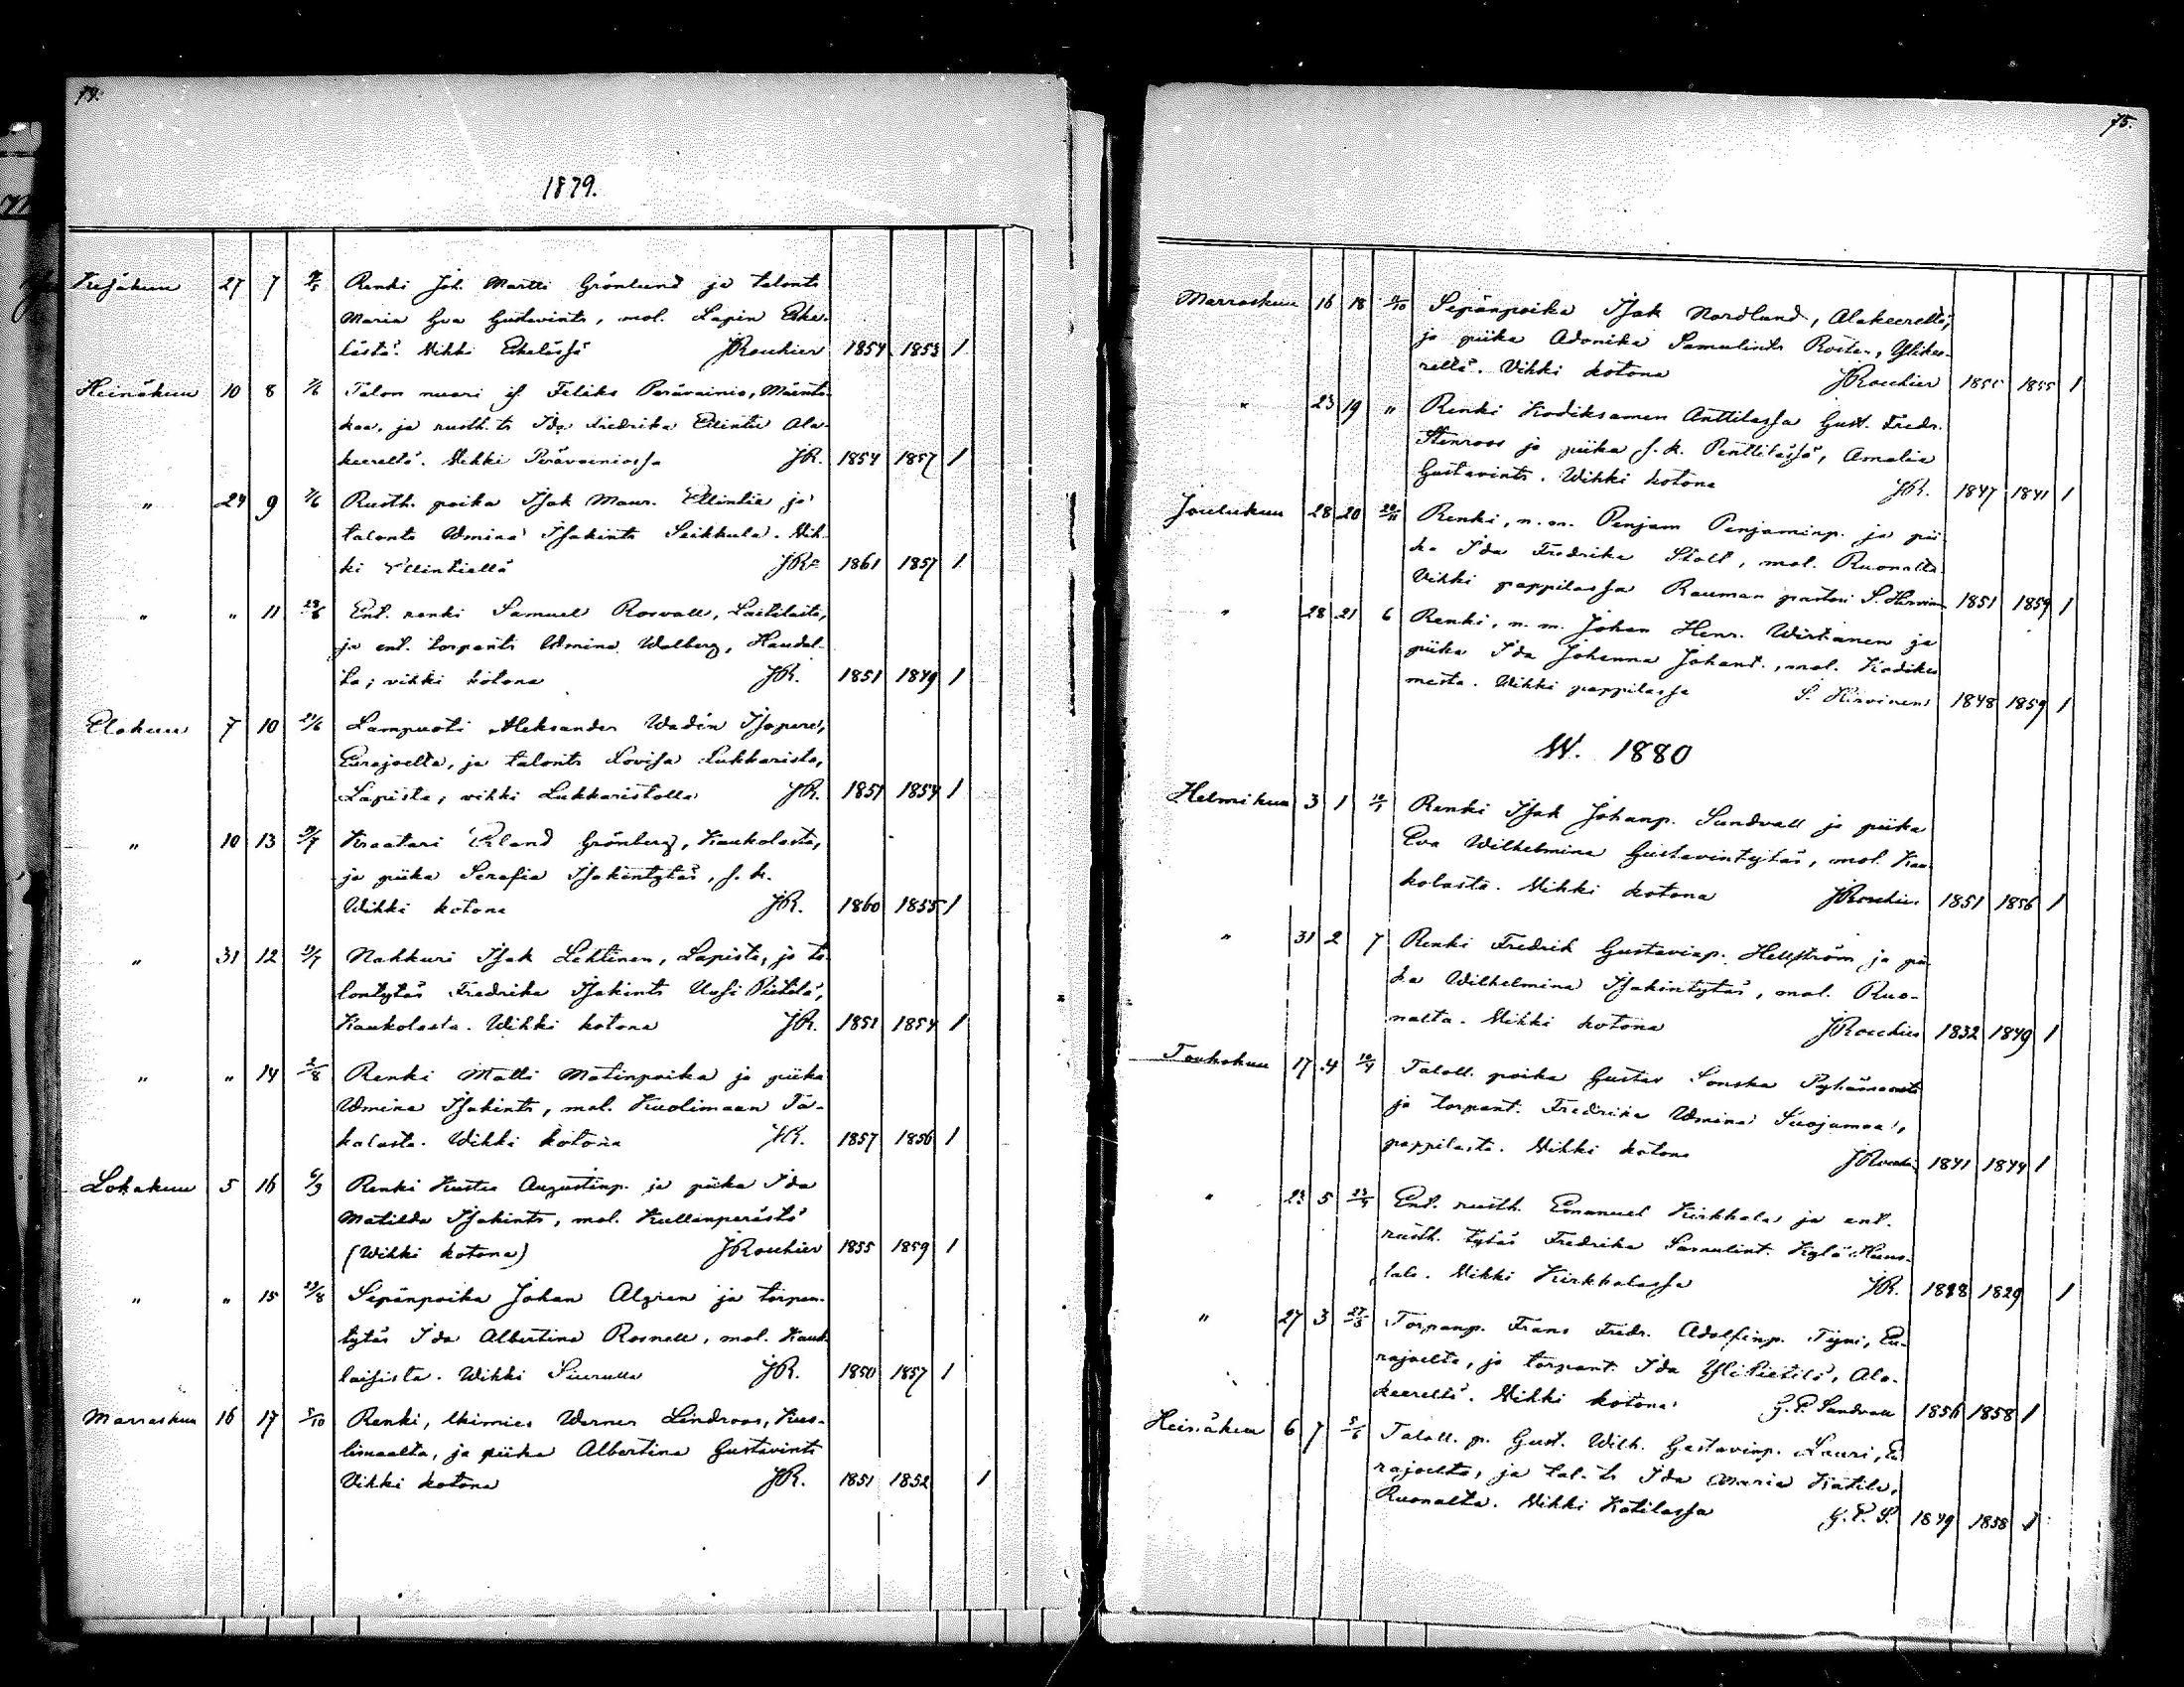 74.
1879.
Kesäkuu 27 7 Renki Joh. Martti Grönlund ja talonts
Maria Eva Gustavints, mol. Lapin Eske-
lästä. Vihki Eskelässä JRouchier 1854 1853 1
Heinäkuu 10 8 7/6 Talon nuori is. Feliks Perävainio, Mäenta-
kaa, ja rusth. ts Ida Fredrika Ellintie Ala-
keereltä. Vihki Perävainiossa JR. 1854 1857 1
" 24 9 7/6 Rusth. poika Isak Maur. Ellintie ja
talonts Wmina Isakints Seikkula. Vih-
ki Ellintiellä JR. 1861 1857 1
" " 11 Ent. renki Samuel Rosvall,
ja ent. torpants Wmina Walberg,
vihki kotona JR. 1851 1849 1
Elokuu 7 10 Lampuoti Aleksander Wadén
Eurajoelta, ja talonts Lovisa Lukkarista,
Lapista; vihki Lukkaristolla JR. 1851 1854 1
" 10 13 Kraatari Erland Grönberg, Kaukolasta,
ja piika Serafia Isakintytär, s. k.
Wihki kotona JR. 1860 1855 1
" 31 12 Nahkuri Isak Lehtinen, Lapista, ja ta-
lontytär Fredrika Isakints Uusi Pietilä,
Kaukolasta. Wihki kotona JR. 1851 1854 1
" " 14 2/8 Renki Matti Matinpoika ja piika
Wmina Isakints, mol. Kuolimaan Ta-
kalasta. Wihki kotona JR. 1857 1856 1
Lokakuu 5 16 Renki Kustaa Augustinp. ja piika Ida
Matilda Isakints, mol. Kullanperästä
(Wihki kotona) JRouchier 1855 1859 1
" " 15 Sepänpoika Johan Algren ja torpan-
tytär Ida Albertina Rosnell, mol.
Wihki JR. 1850 1857 1
Marraskuu 16 17 5/10 Renki, leskimies Werner Lindroos, Kuo-
limaalta, ja piika Albertina Gustavints
Vihki kotona JR. 1851 1852 1
75.
Marraskuu 16 18 Sepänpoika Isak Nordlund, Alakeereltä,
ja piika Adonika Samulints Roster, Ylikee-
reltä. Vihki kotona JRouchier 1855 1855 1
" 23 19 " Renki Kodiksamen Anttilassa Gust. Fredr.
Stenroos ja piika s. k. Penttilässä, Amalia
Gustavints. Wihki kotona JR. 1847 1841 1
Joulukuu 28 20 Renki, n. m. Penjam Penjaminp. ja pii-
ka Ida Fredrika Ståll, mol. Ruonalta.
Vihki pappilassa Rauman pastori S. Hirvinen 1851 1859 1
" 28 21 6 Renki, n. m. Johan Henr. Wirtanen ja
piika Ida Johanna Johant., mol. Kodiksa-
mesta. Wihki pappilassa S. Hirvinen 1848 1859 1
W. 1880
Helmikuu 3 1 Renki Isak Johanp. Sundvall ja piika
Eva Wilhelmina Gustavintytär, mol. Kau-
kolasta. Vihki kotona JRouchier 1851 1856 1
" 31 2 7 Renki Fredrik Gustavinp. Hellström ja pii-
ka Wilhelmina Isakintytär, mol. Ruo-
nalta. Vihki kotona JRouchier 1832 1849 1
Toukokuu 17 4 Taloll. poika Gustav Sonska Pyhämaasta
ja torpant. Fredrika Wmina Suojamaa,
pappilasta. Vihki kotona JRouchier 1841 1844 1
" 23 5 Ent. rusth. Emanuel Kirkkala ja ent.
rusth. tytär Fredrika Samulint.
Vihki Kirkkalassa JR. 1828 1829 1
" 27 3 Torpanp. Frans Fredr. Adolfinp. Tyni, Eu-
rajoelta, ja torpant. Ida Yli Pietilä, Ala-
keereltä. Vihki kotona G. P. Sandvall 1856 1858 1
Heinäkuu 6 7 5/6 Taloll. p. Gust. Wilh. Gustavinp. Lauri, Eu-
rajoelta, ja tal. ts Ida Maria Katila,
Ruonalta. Vihki Katilassa G. P. S. 1849 1858 1